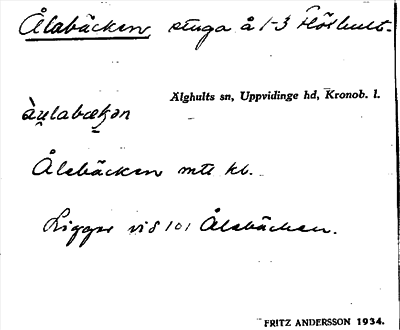 Ålabäcken stuga å 1-3 Flöxhult.
Älghults sn, Uppvidinge hd, Kronob. l.
Ålabäcken mtl kb.
Ligger vid 101 Ålabäcken.
FRITZ ANDERSSON 1934.